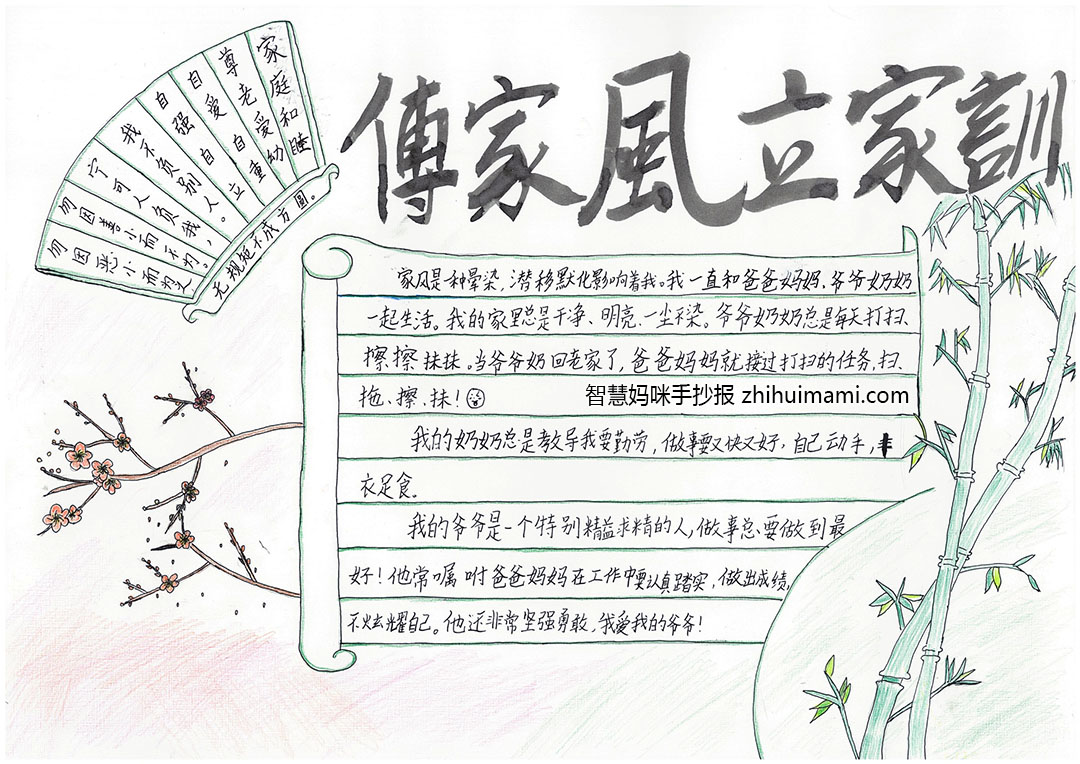 傳家風立家訓
勿因恶小而为之
勿因善小而不为。
宁可人负我,
我不负别人。
自强自立
自爱自重
尊老爱幼
家庭和睦
无规矩不成方圆。
家风是一种晕染,潜移默化影响着我。我一直和爸爸妈妈、爷爷奶奶
一起生活。我的家里总是干净、明亮、一尘不染。爷爷奶奶总是每天打扫、
擦擦抹抹。当爷爷奶回老家了,爸爸妈妈就接过打扫的任务,扫、
拖、擦、抹!
智慧妈咪手抄报 zhihuimami.com
我的奶奶总是教导我要勤劳,做事要又快又好,自己动手,丰
衣足食。
我的爷爷是一个特别精益求精的人,做事总要做到最
好!他常嘱咐爸爸妈妈在工作中要认真踏实,做出成绩,
不炫耀自己。他还非常坚强勇敢,我爱我的爷爷!